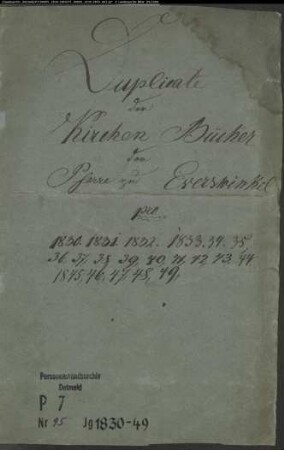 Duplicate
der
Kirchen Bücher
der
Pfarre zu Everswinkel
pro
1830. 1831. 1832. 1833. 34. 35.
36. 37. 38. 39. 40. 41. 42. 43. 44.
1845. 46. 47. 48. 49.
Personenstandsarchiv
Detmold
P 7
Nr 95 Jg 1830-49